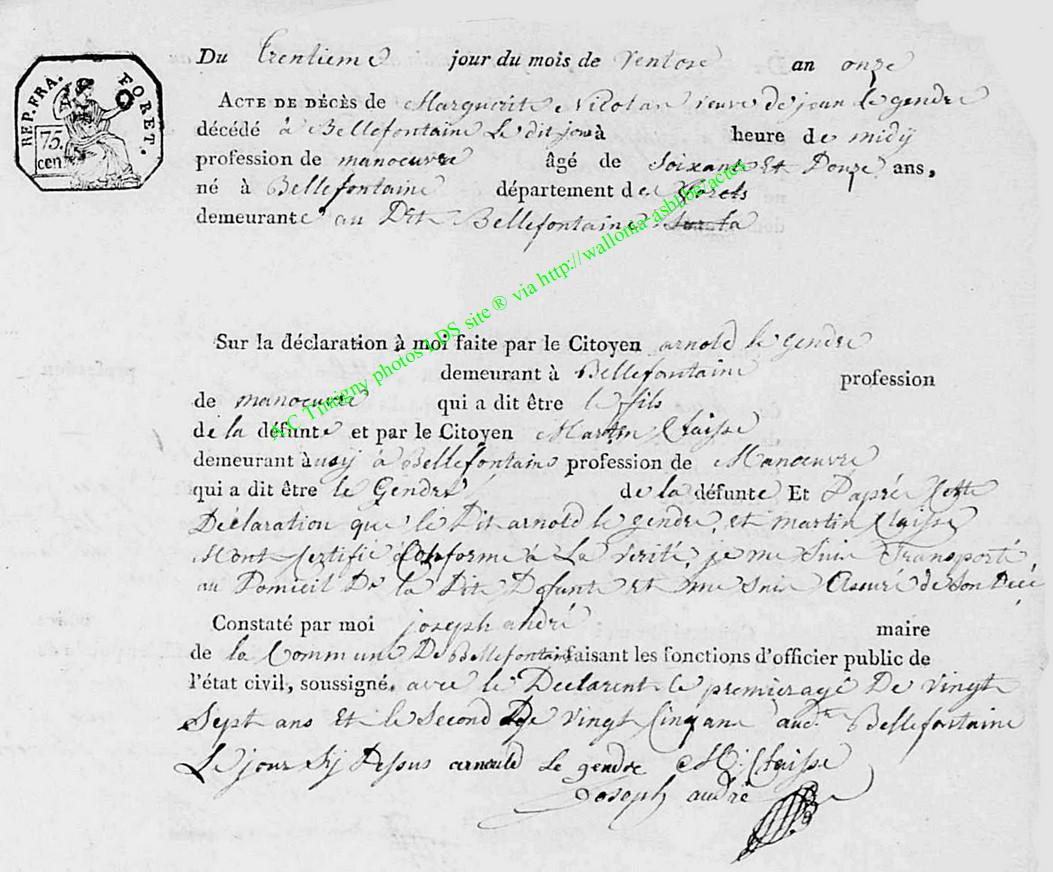 REP. FRA. FORET.
75. cen
Du trentieme jour du mois de ventose an onze
ACTE DE DÉCÈS de Marguerite Nicolas veuve de jean le gendre
décédé à Bellefontaine Le dit jour à heure de midÿ
profession de manoeuvre âgé de Soixante Et Douze ans,
né à Bellefontaine département de forets
demeurante au Dit Bellefontaine
Sur la déclaration à moi faite par le Citoyen arnold le gendre
demeurant à Bellefontaine profession
de manoeuvre qui a dit être le fils
de la défunte et par le Citoyen Martin Claisse
demeurant àusÿ à Bellefontaine profession de Manoeuvre
qui a dit être le Gendre de la défunte Et Daprés Cette
Déclaration que le Dit arnold le gendre et martin Claisse
Mont Certifié Conforme à La verité, je me suis Transporté
au Domicil De la Dite Defunte Et me suis Assuré de son Décé
Constaté par moi joseph andré maire
de la Commune De Bellefontaine faisant les fonctions d'officier public de
l'état civil, soussigné. avec le Déclarent le premier agé De vingt
Sept ans Et le Second De vingt Cinq ans audt Bellefontaine
Le jour Sÿ Dessus arnould le gendre M: Claisse
Joseph andré
A C Thaigny photos LDS site ® via http://wallonia-asbl.be/actes